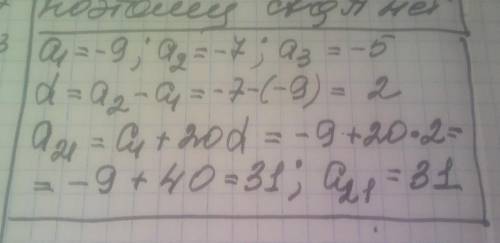 поэтому
a₁ = -9; a₂ = -7; a₃ = -5
d = a₂ - a₁ = -7-(-9) = 2
a₂₁ = a₁ + 20d = -9 + 20·2 =
= -9 + 40 = 31; a₂₁ = 31